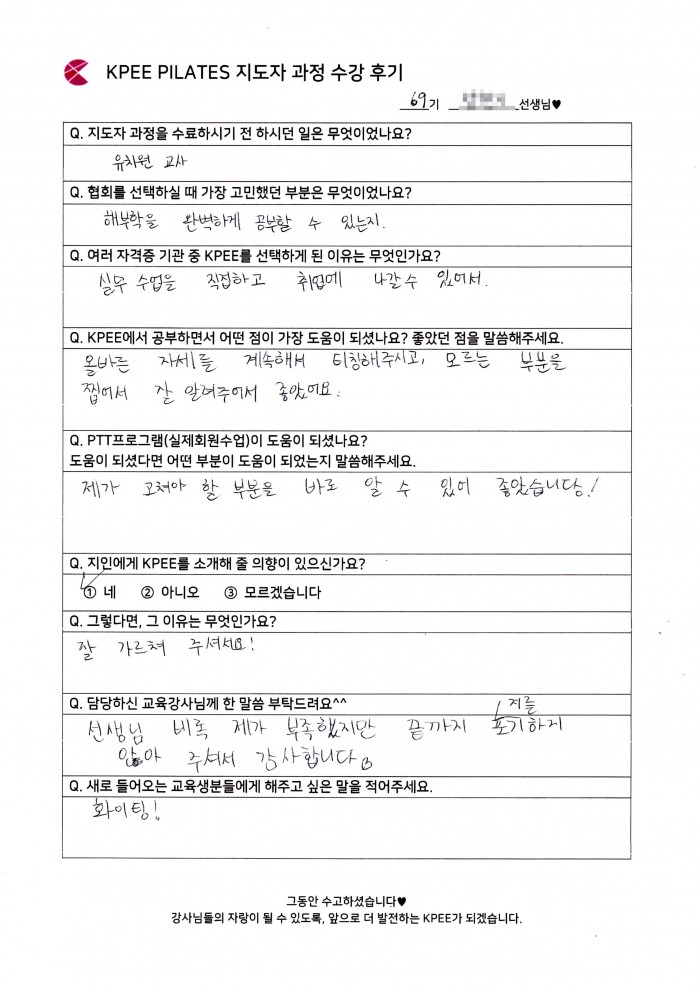 KPEE PILATES 지도자 과정 수강 후기
69기 선생님♥
Q. 지도자 과정을 수료하시기 전 하시던 일은 무엇이었나요?
유치원 교사
Q. 협회를 선택하실 때 가장 고민했던 부분은 무엇이었나요?
해부학을 완벽하게 공부할 수 있는지.
Q. 여러 자격증 기관 중 KPEE를 선택하게 된 이유는 무엇인가요?
실무 수업을 직접하고 취업에 나갈수 있어서.
Q. KPEE에서 공부하면서 어떤 점이 가장 도움이 되셨나요? 좋았던 점을 말씀해주세요.
올바른 자세를 계속해서 티칭해주시고, 모르는 부분을
찝어서 잘 알려주어서 좋았어요.
Q. PTT프로그램(실제회원수업)이 도움이 되셨나요?
도움이 되셨다면 어떤 부분이 도움이 되었는지 말씀해주세요.
제가 고쳐야 할 부분을 바로 알 수 있어 좋았습니다!
Q. 지인에게 KPEE를 소개해 줄 의향이 있으신가요?
① 네 ② 아니오 ③ 모르겠습니다
Q. 그렇다면, 그 이유는 무엇인가요?
잘 가르쳐 주셔세요!
Q. 담당하신 교육강사님께 한 말씀 부탁드려요^^
저를
선생님 비록 제가 부족했지만 끝까지 포기하지
않아 주셔서 감사합니다
Q. 새로 들어오는 교육생분들에게 해주고 싶은 말을 적어주세요.
화이팅!
그동안 수고하셨습니다♥
강사님들의 자랑이 될 수 있도록, 앞으로 더 발전하는 KPEE가 되겠습니다.